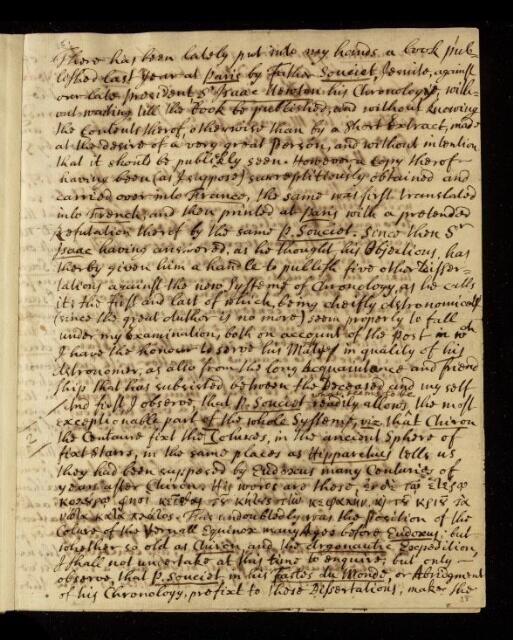 There has been lately put into my hands a book pub-
lished last year at Paris by Father Souciet, Jesuite, against
our late president Sr Isaac Newton his Chronology, with-
out waiting till the book be published, and without knowing
the Contents therof, otherwise than by a Short Extract, made
at the desire of a very great Person, and without intention
that it should be publickly seen. However a Copy therof
having been (as I suppose) surreptitiously obtained and
carried over into France, the same was first translated
into French, and then printed at Paris with a pretended
refutation therof by the same P. Souciet. Since then Sr
Isaac having answered, as he thought, his Objections, has
therby given him a handle to publish five other Disser-
tations against the new Systeme of Chronology, as he calls
it: the first and last of which, being cheifly Astronomicall
(since the great Author is no more) seem properly to fall
under my examination, both on account of the Post in wch
I have the honour to serve his Maty in quality of his
Astronomer, as also from the long Acquaintance and friend
ship that has subsisted between the Deceased and my self
And first I observe, that P. Souciet readily allows the most
exceptionable part of the whole Systeme, viz that Chiron
the Centaure fixt the Colures, in the ancient Sphere of
fixt Starrs, in the same places as Hipparchus tells us
they had been supposed by Eudoxus many Centuries of
years after Chiron. His words are these,
This undoubtedly was the position of the
Colure of the Vernall Equinox many Ages before Eudoxus: but
whether so old as Chiron and the Argonautic Expedition,
I shall not undertake at this time to enquire, but only
observe, that P. Souciet in his Fastes du Monde, or Abridgment
of his Chronology, prefixt to these Dissertations, makes the